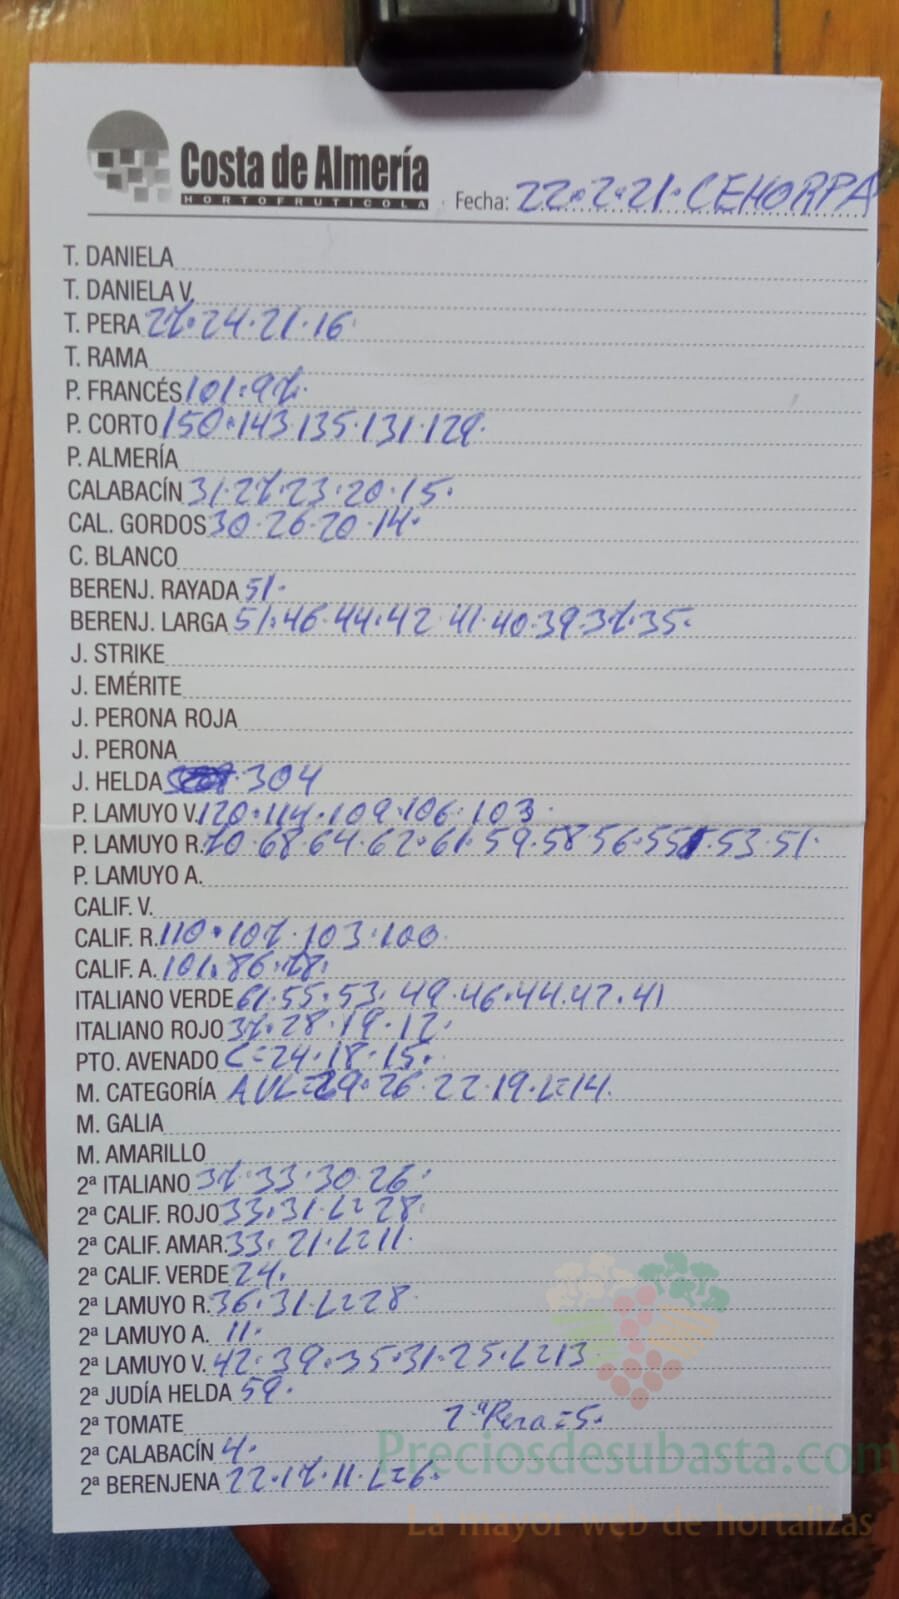 Costa de Almería
HORTOFRUTICOLA
Fecha: 22·2·21· CEHORPA
T. DANIELA
T. DANIELA V.
T. PERA 27·24·21·16·
T. RAMA
P. FRANCÉS 101·97·
P. CORTO 150·143·135·131·129·
P. ALMERÍA
CALABACÍN 31·27·23·20·15·
CAL. GORDOS 30·26·20·14·
C. BLANCO
BERENJ. RAYADA 51·
BERENJ. LARGA 51·46·44·42·41·40·39·37·35·
J. STRIKE
J. EMÉRITE
J. PERONA ROJA
J. PERONA
J. HELDA 304
P. LAMUYO V. 120·114·109·106·103·
P. LAMUYO R. 70·68·64·62·61·59·58·56·55·53·51·
P. LAMUYO A.
CALIF. V.
CALIF. R. 110·107·103·100·
CALIF. A. 101·86·78·
ITALIANO VERDE 61·55·53·49·46·44·42·41
ITALIANO ROJO 37·28·19·12·
PTO. AVENADO C=24·18·15·
M. CATEGORÍA AVL=29·26·22·19·L=14·
M. GALIA
M. AMARILLO
2ª ITALIANO 37·33·30·26·
2ª CALIF. ROJO 33·31·L=28·
2ª CALIF. AMAR. 33·21·L=11·
2ª CALIF. VERDE 24·
2ª LAMUYO R. 36·31·L=28·
2ª LAMUYO A. 11·
2ª LAMUYO V. 42·39·35·31·25·L=13
2ª JUDÍA HELDA 59·
2ª TOMATE 2ª Pera=5·
2ª CALABACÍN 4·
2ª BERENJENA 22·17·11·L=6·
Preciosdesubasta.com
La mayor web de hortalizas